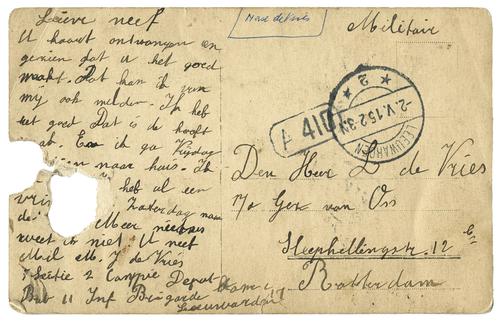 Lieve neef
U kaart ontvangen en
gezien dat u het goed
maakt. Dat kan ik van
mij ook melden. Ik heb
het goed Dat is de hooft
zak. En ik ga Vrijdag
naar huis. Ik
heb al een
Zaterdag naar
de Meer nieuws
weet ik niet U neef
Mil M. J de Vriés
7 Sectie 2 Compie Depot
Bat 11 Inf Brigarde
Leeuwarden
Militair
A 410
LEEUWARDEN
2.V.15 2-3N
2
Den Heer L de Vriés
p/a Ger van Os
Sleephellingstr. 12
Rotterdam